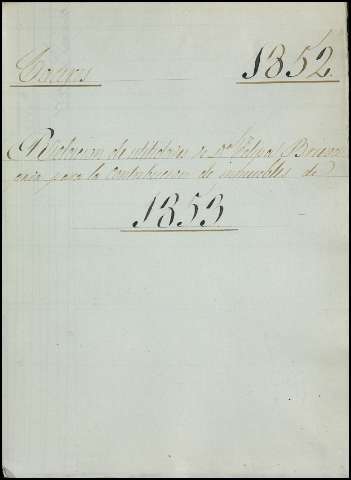 Caceres 1852.
Relacion de utilidades de Dª Felipa
para la contribucion de inmuebles de
1853